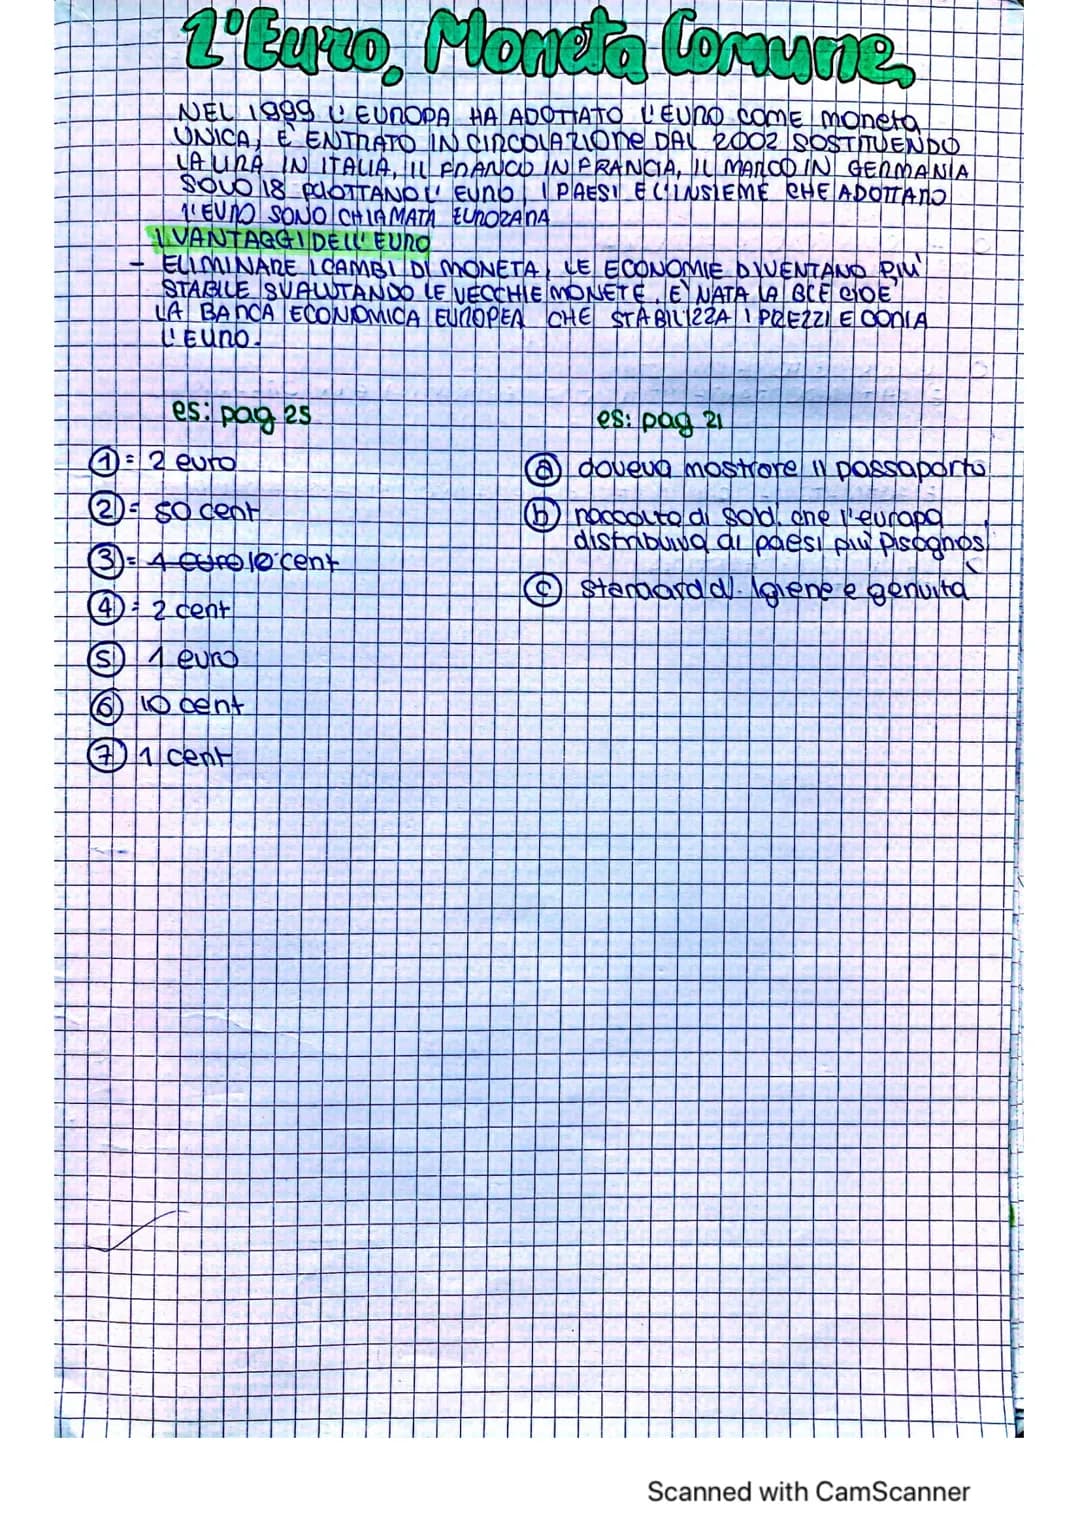 l'Euro, Moneta Comune
NEL 1999 L'EUROPA HA ADOTTATO L'EURO COME moneta
UNICA, È ENTRATO IN CIRCOLAZIONe DAL 2002 SOSTITUENDO
LA LIRA IN ITALIA, IL FRANCO IN FRANCIA, IL MARCO IN GERMANIA
SOLO 18 ADOTTANO L'EURO, I PAESI E L'INSIEME CHE ADOTTANO
l'EURO SONO CHIAMATA EUROZANA
I VANTAGGI DELL'EURO
- ELIMINARE I CAMBI DI MONETA, LE ECONOMIE DIVENTANO PIÙ
STABILE SVALUTANDO LE VECCHIE MONETE. E' NATA LA BCE CIOÈ
LA BANCA ECONOMICA EUROPEA CHE STABILIZZA I PREZZI E CONIA
L'EURO.
es: pag 25
1 = 2 euro
2 = 50 cent
3 = 1 euro 10 cent
4 = 2 cent
5 1 euro
6 10 cent
7 1 cent
es: pag 21
a doveva mostrare il passaporto
b raccolta di soldi che l'europa
distribuiva ai paesi più bisognosi
c standard di igiene e genuità
Scanned with CamScanner